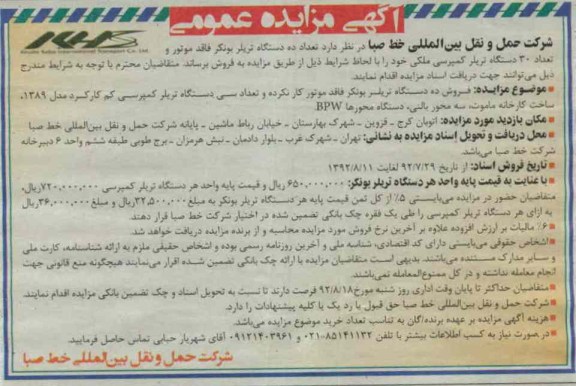 آگهی مزایده عمومی
شرکت حمل و نقل بین‌المللی خط صبا در نظر دارد تعداد ده دستگاه تریلر بونکر فاقد موتور و
تعداد ۳۰ دستگاه تریلر کمپرسی ملکی خود را با لحاظ شرایط ذیل از طریق مزایده به فروش برساند. متقاضیان محترم با توجه به شرایط مندرج
ذیل می‌توانند جهت دریافت اسناد مزایده اقدام نمایند.
موضوع مزایده: فروش ده دستگاه تریلر بونکر فاقد موتور کار نکرده و تعداد سی دستگاه تریلر کمپرسی کم کارکرد مدل ۱۳۸۹،
ساخت کارخانه ماموت، سه محور بالنی، دستگاه محورها BPW.
مکان بازدید مورد مزایده: اتوبان کرج - قزوین - شهرک بهارستان - خیابان رباط ماشین - پایانه شرکت حمل و نقل بین‌المللی خط صبا
محل دریافت و تحویل اسناد مزایده به نشانی: تهران - شهرک غرب - بلوار دادمان - نبش هرمزان - برج طوبی طبقه ششم واحد ۶ دبیرخانه
شرکت خط صبا می‌باشد.
تاریخ فروش اسناد: از تاریخ ۹۲/۷/۲۹ لغایت ۱۳۹۲/۸/۱۱
با عنایت به قیمت پایه واحد هر دستگاه تریلر بونکر: ۶۵۰,۰۰۰,۰۰۰ ریال و قیمت پایه واحد هر دستگاه تریلر کمپرسی ۷۲۰,۰۰۰,۰۰۰ ریال،
متقاضیان حضور در مزایده می‌بایستی ۵٪ از کل ثمن قیمت پایه هر دستگاه تریلر بونکر به مبلغ ۳۲,۵۰۰,۰۰۰ ریال و مبلغ ۳۶,۰۰۰,۰۰۰ ریال
به ازای هر دستگاه تریلر کمپرسی را طی یک فقره چک بانکی تضمین شده در اختیار شرکت خط صبا قرار دهند
۶٪ مالیات بر ارزش افزوده علاوه بر آخرین نرخ فروش مورد مزایده محاسبه و از برنده مزایده دریافت خواهد شد.
اشخاص حقوقی می‌بایستی دارای کد اقتصادی، شناسه ملی و آخرین روزنامه رسمی بوده و اشخاص حقیقی ملزم به ارائه شناسنامه، کارت ملی
و سایر مدارک مستند می‌باشند. بدیهی است متقاضیان مزایده با ارائه چک بانکی تضمین شده اقرار می‌نمایند هیچگونه منع قانونی جهت
انجام معامله نداشته و در کل ممنوع‌المعامله نمی‌باشند.
متقاضیان حداکثر تا پایان وقت اداری روز شنبه مورخ ۹۲/۸/۱۸ فرصت دارند تا نسبت به تحویل اسناد و چک تضمین بانکی مزایده اقدام نمایند.
شرکت حمل و نقل بین‌المللی خط صبا حق قبول یا رد یک یا کلیه پیشنهادات را دارد.
هزینه آگهی مزایده بر عهده برنده/گان به تناسب تعداد خرید موضوع مزایده می‌باشد.
در صورت نیاز به کسب اطلاعات بیشتر با تلفن ۸۵۱۴۱۱۳۲-۰۲۱ و ۰۹۱۲۱۴۰۳۹۶۱ آقای شهریار حبابی تماس حاصل فرمایید.
شرکت حمل و نقل بین‌المللی خط صبا